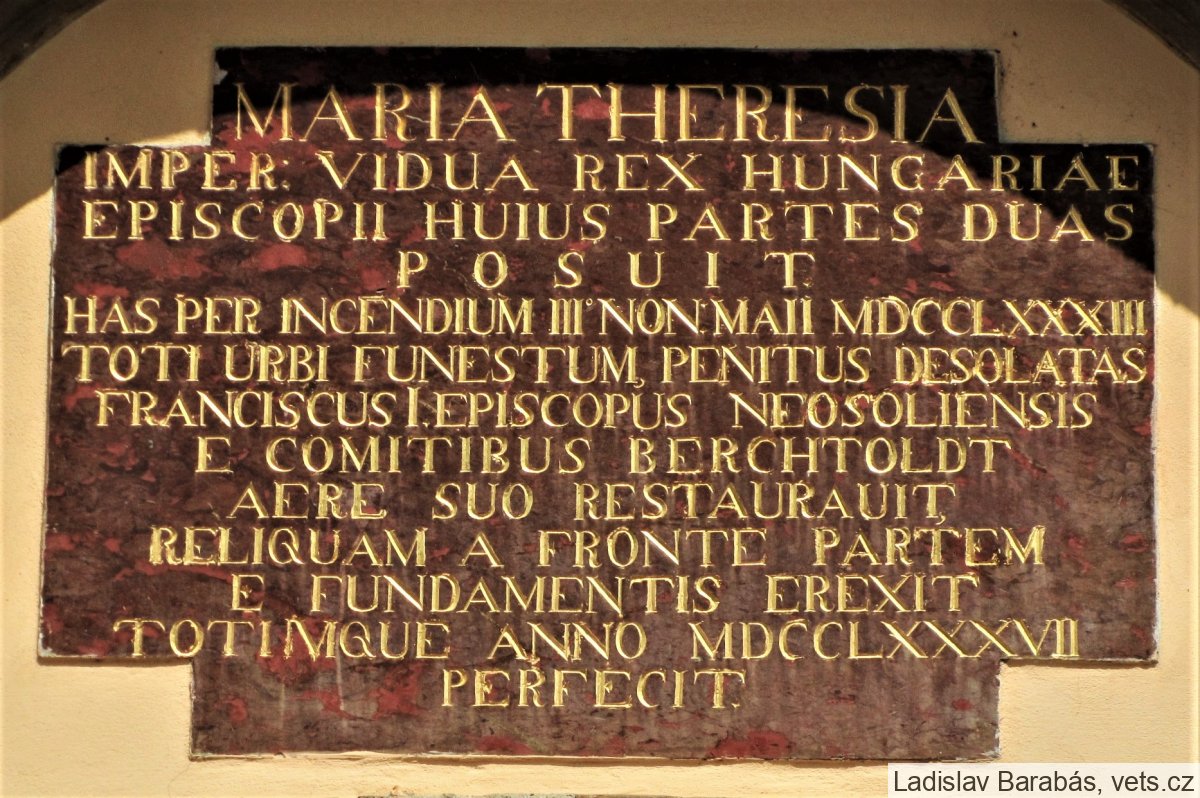 MARIA THERESIA
IMPER: VIDUA REX HUNGARIAE
EPISCOPII HUIUS PARTES DUAS
POSUIT.
HAS PER INCENDIUM III° NON: MAII MDCCLXXXIIII
TOTI URBI FUNESTUM, PENITUS DESOLATAS
FRANCISCUS I. EPISCOPUS NEOSOLIENSIS
E COMITIBUS BERCHTOLDT
AERE SUO RESTAURAUIT,
RELIQUAM A FRONTE PARTEM
E FUNDAMENTIS EREXIT
TOTUMQUE ANNO MDCCLXXXVII
PERFECIT.
Ladislav Barabás, vets.cz